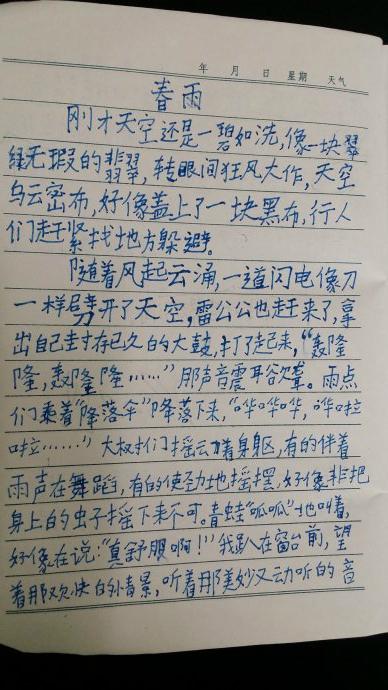 年 月 日 星期 天气
春雨
刚才天空还是一碧如洗,像一块翠
绿无瑕的翡翠,转眼间狂风大作,天空
乌云密布,好像盖上了一块黑布,行人
们赶紧找地方躲避。
随着风起云涌,一道闪电像刀
一样劈开了天空,雷公公也赶来了,拿
出自己封存已久的大鼓,打了起来,“轰隆
隆,轰隆隆……”那声音震耳欲聋。雨点
们乘着“降落伞”降落下来,“哗哗哗,哗啦
啦……”大叔们摇动着身躯,有的伴着
雨声在舞蹈,有的使劲地摇摆,好像非把
身上的虫子摇下来不可。青蛙“呱呱”地叫着,
好像在说:“真舒服啊!”我趴在窗台前,望
着那欢快的情景,听着那美妙又动听的音